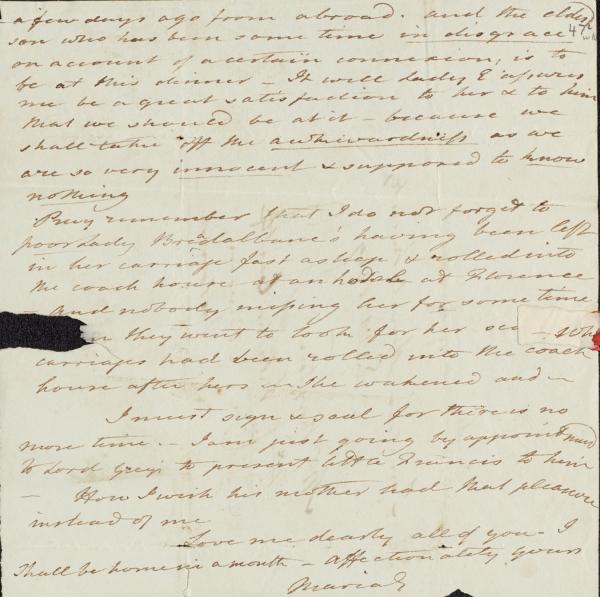 a few days ago from abroad. and the eldest
son who has been some time in disgrace 47
on account of a certain connexion, is to
be at this dinner - It will Lady E assures
me be a great satisfaction to her & to him
that we should be at it - because we
shall take off the awkwardness as we
are so very innocent & supposed to know
nothing
Pray remember that I do not forget to
poor Lady Breadalbane's having been left
in her carriage fast asleep & rolled into
the coach house at an hotel at Florence
- and nobody missing her for some time
they went to look for her
carriages had been rolled into the coach
house after hers - She wakened and -
I must sign & seal for there is no
more time. - I am just going by appointment
to Lord Grey's to present little Francis to him
- How I wish his mother had that pleasure
instead of me
Love me dearly all of you - I
shall be home in a month - affectionately yours
Maria E